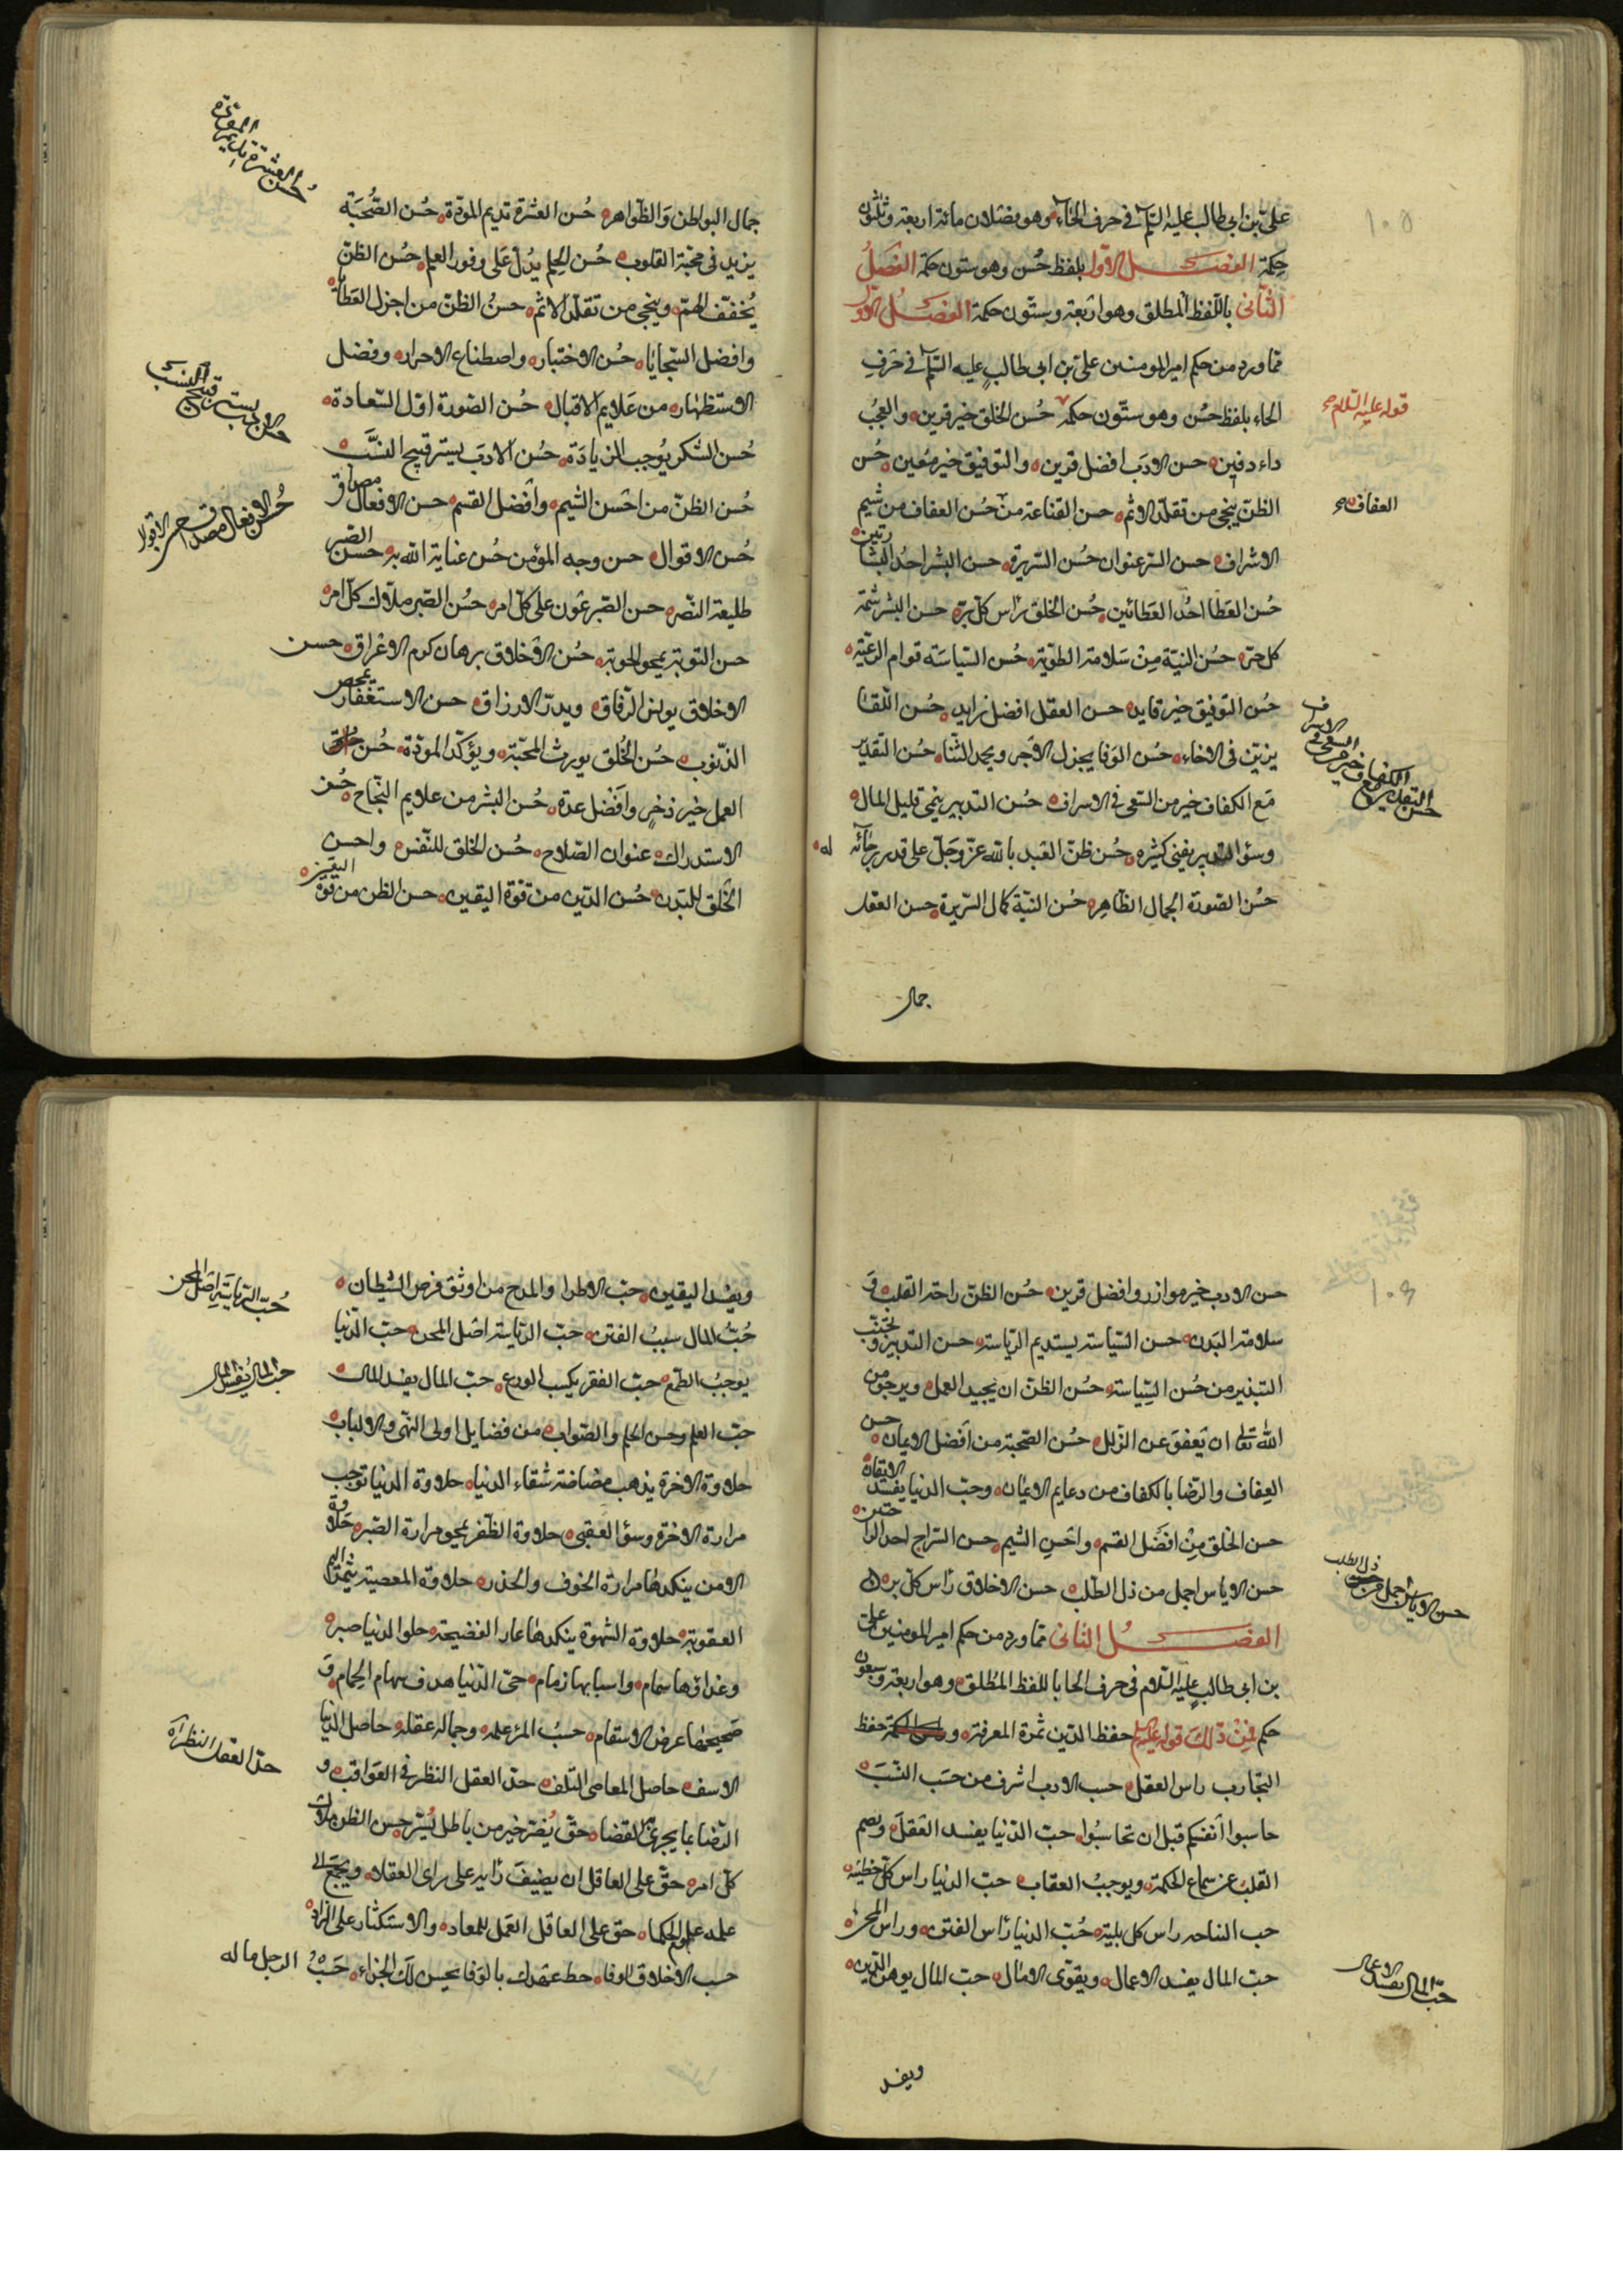 علي بن ابي طالب عليه السلم في حرف الحاء وهو فصلان مائة اربعة وثلثون
حكمة الفصل الاول بلفظ حُسن وهو ستون حكمة الفصلُ
الثاني باللفظ المطلق وهو اربعة وستون حكمة الفصل الاول
مما ورد من حكم امير المومنين علي بن ابي طالب عليه السلم في حرف
الحاء بلفظ حسُن وهو ستون حكمه حُسن الخلق خير قرين والعجبُ
داء دفين حسن الادب افضل قرين والتوفيق خير مُعين حُسن
الظن ينجي من تقلد الاثم حسن القناعة من حُسن العفاف من شيم
الاشراف حسن الستر عنوان حُسن السريرة حسن البشر احدُ البشارتين
حُسن العَطا احدُ العَطائين حُسن الخلق راس كل برّ حسن البشر شيمة
كل حرّ حُسن النيّة مِنْ سَلامة الطويّة حُسن السياسَة قوام الرعيّة
حُسن التوفيق خير قايد حسن العقل افضل رايد حُسن اللقا
يزيّن في الاخاء حُسن الوَفا يجزل الاَجر ويجمل الثنا حُسن التقدير
مَع الكفاف خير من السعي في الاسراف حُسن التدبير ينمي قليل المال
وسؤ التدبير يفني كثيره حُسن ظن العَبد بالله عزّ وجَلّ على قدر رجائه له
حُسن الصّورة الجمال الظاهر حُسن النيّة كمال السّريرة حسن العقل
جمال
قوله عليه السلام
العفاف
حسن التقدير مع الكفاف خير من السعى في الاسراف
١٠٥
جمال البواطن وَالظواهر حُسن العشرة تديم المودّة حُسن الصُّحبَة
يزيد في محبّة القلوب حُسن الحلم يدُلّ عَلى وفور العلم حُسن الظنّ
يُخفّف الهمّ وينجي من تقلّد الاثم حسنُ الظنّ من اجزل العَطايا
وافضل السّجايا حُسن الاختيار واصطناع الاحرار وفضل
الاستظهار من عَلايم الاقبال حُسن الصّورة اوّل السّعادة
حُسن الشكر يُوجب الزيادَة حُسن الادبَ يستر قبيح النسَب
حُسن الظنّ من احْسن الشيم وافضل القسم حسن الافعال مصداق
حُسن الاقوال حسن وجه المؤمن حُسن عناية الله به حسن الصّبر
طليعة النّصر حسن الصّبر عَون على كلّ امر حسُن الصّبر ملاك كلّ امر
حسن التوبة يمحو الحوبة حُسن الاَخلاق برهان كرم الاعْراق حسن
الاخلاق يونس الرّفاق ويدرّ الارزاق حسن الاستغفار يمحص
الذنوب حُسن الخُلق يورث المحبّة ويؤكّد المودّة حُسن
العمل خير ذخرٍ وافْضل عدة حُسن البشر من علايم النّجاح حُسن
الاستدراك عنوان الصّلاح حُسن الخلق للنّفس واحسن
الخَلق للبَدن حُسن الدّين من قوة اليقين حسن الظن من قوة اليقين
حُسن العشرة تديم المودّة
حسن الادب يستر قبيح النسب
حُسن الافعال مصداق حسن الاقوال
حسن الادب خير موازر وافضل قرين حُسن الظنّ راحة القلب وَ
سلامة البَدن حسن السّياسة يستديم الرّياسة حسن التدبير وتجنّب
التبذير من حُسن السِّياسة حسُن الظنّ ان يجيد العمل ويرجو من
الله تعالى ان يَعفو عن الزّلل حسُن الصّحبة من افضل الايمان حسن
العِفاف والرّضا بالكفاف من دعايم الايمان وحبّ الدنيا يفسد الايقان
حسن الخلق مِنْ افضَل القسم واحْسن الشيم حسن السّراج احد الراحتين
حسن الاياس اجمل من ذل الطّلب حسن الاخلاق رأس كل بر
الفصل الثاني مما ورد من حكم امير المومنين علي
بن ابي طالب عليه السّلام في حرف الحا باللفظ المطلق وهو اربعة وسبعون
حكم فمِنْ ذلكَ قوله عليه السلم حفظ الدّين ثمرة المعرفة و راس الحكمة حفظ
التجارب راس العقل حسب الادب اشرف من حسَب النسَبَ
حاسبوا اَنفسكم قبل ان تحاسبُوا حبّ الدّنيا يفسد العَقلَ ويصم
القلبَ عن سماع الحكمة ويوجبُ العقاب حبّ الدنيا راس كلّ خطيئة
حب النباهه راس كل بليّة حُبّ الدنيا رأس الفتن وراس المحن
حبّ المال يفسد الاعمال ويقوّى الامال حبّ المال يوهن الدّين
ويفسد
حسن الاياس اجمل من ذل الطلب
حبّ المال يفسد الاعمال
ويفسد اليقين حبّ الاطرا والمدح من اوثق فرص الشّيطان
حُبُّ المال سببُ الفتن حبّ الرّياسة اصْل المحن حبّ الدّنيا
يوجبُ الطّمع حبّ الفقر يكسب الورع حبّ المال يفسد المال
حبّ العلم وحسن الحلم والصّواب من فضايل اولى النّهى والالباب
حلاوة الاخرة يذهب مضاضة شقاء الدنيا حلاوة الدنيا توجب
مرارة الاخرة وسؤ العقبى حلاوة الظّفر يمحو مرارة الصّبر حَلاوة
الامن ينكدها مرارة الخوف والحذر حلاوة المعصية يثمرها اليم
العقوبة حلاوة الشهوة ينكدها عار الفضيحة حلو الدنيا صبر
وغذاؤها سمام واسبابها زمام حيّ الدّنيا هدف سهام الحِمام وَ
صَحيحها عرض الاسقام حسبُ المرء علمه وجماله عقله حاصل الدنيا
الاسف حاصل المعاصي التلف حدّ العقل النظر في العَواقب و
الرّضا بما يجري به القضا حقّ يُضرّ خير من باطل يُسَرّ حسن الظن ملاك
كلّ امر حقّ على العاقل ان يضيفَ رأيه على راى العقلا ويجمَع الى
علمه علوم الحكما حقّ على العاقل العَمل للمعاد والاستكثار على الزاد
حسب الاخلاق الوفا حط عهدك بالوَفا يحسن لكَ الجزاء حَسْبُ الرجل ماله
حُبّ الرّياسَة اصْل المحن
حبّ المال يُفسد المال
حدّ العقل النظر